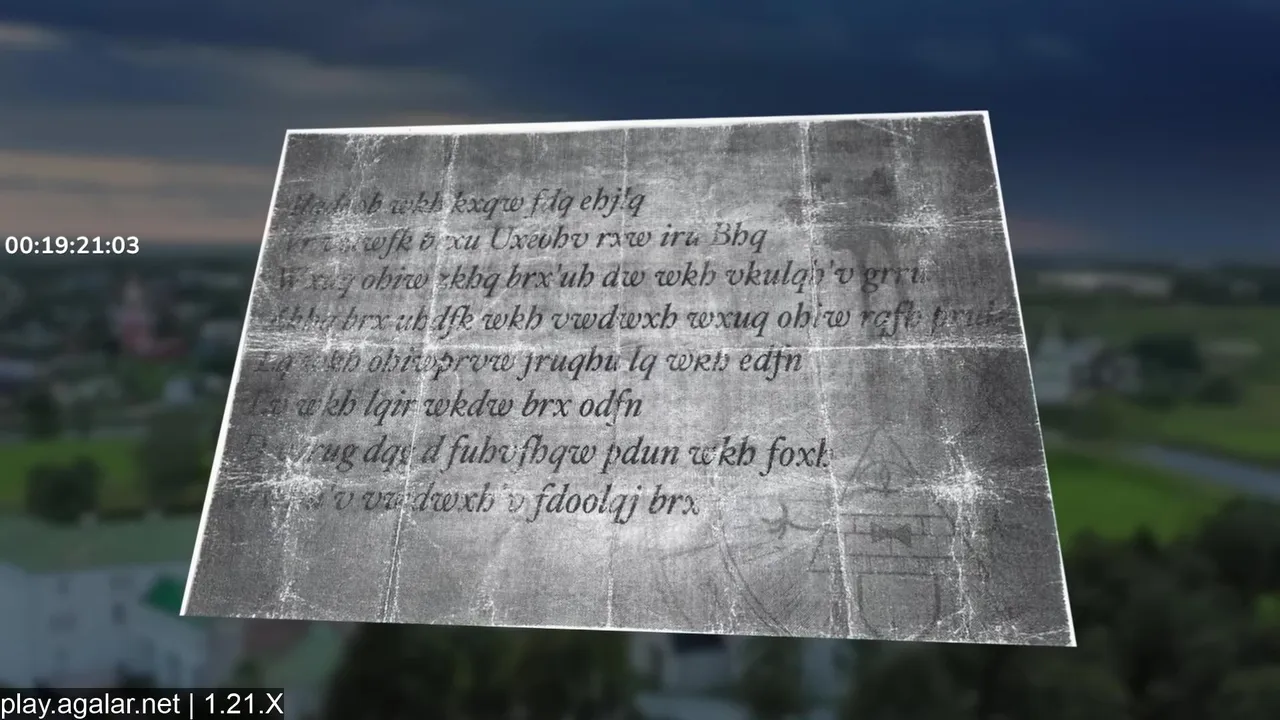 00:19:21:03
wkh kxqw fdq ehjlq
brxu Uxeohv rxw iru Bhq
Wxuq ohiw zkhq brx'uh dw wkh vkulqh'v grru
Zkhq brx uhdfk wkh vwdwxh wxuq ohiw rqfh pruh
Lq wkh ohiwprvw fruqhu lq wkh edfn
Lv wkh lqir wkdw brx odfn
dqg d fuhvfhqw pdun wkh foxh
vwdwxh'v fdoolqj brx
play.agalar.net | 1.21.X